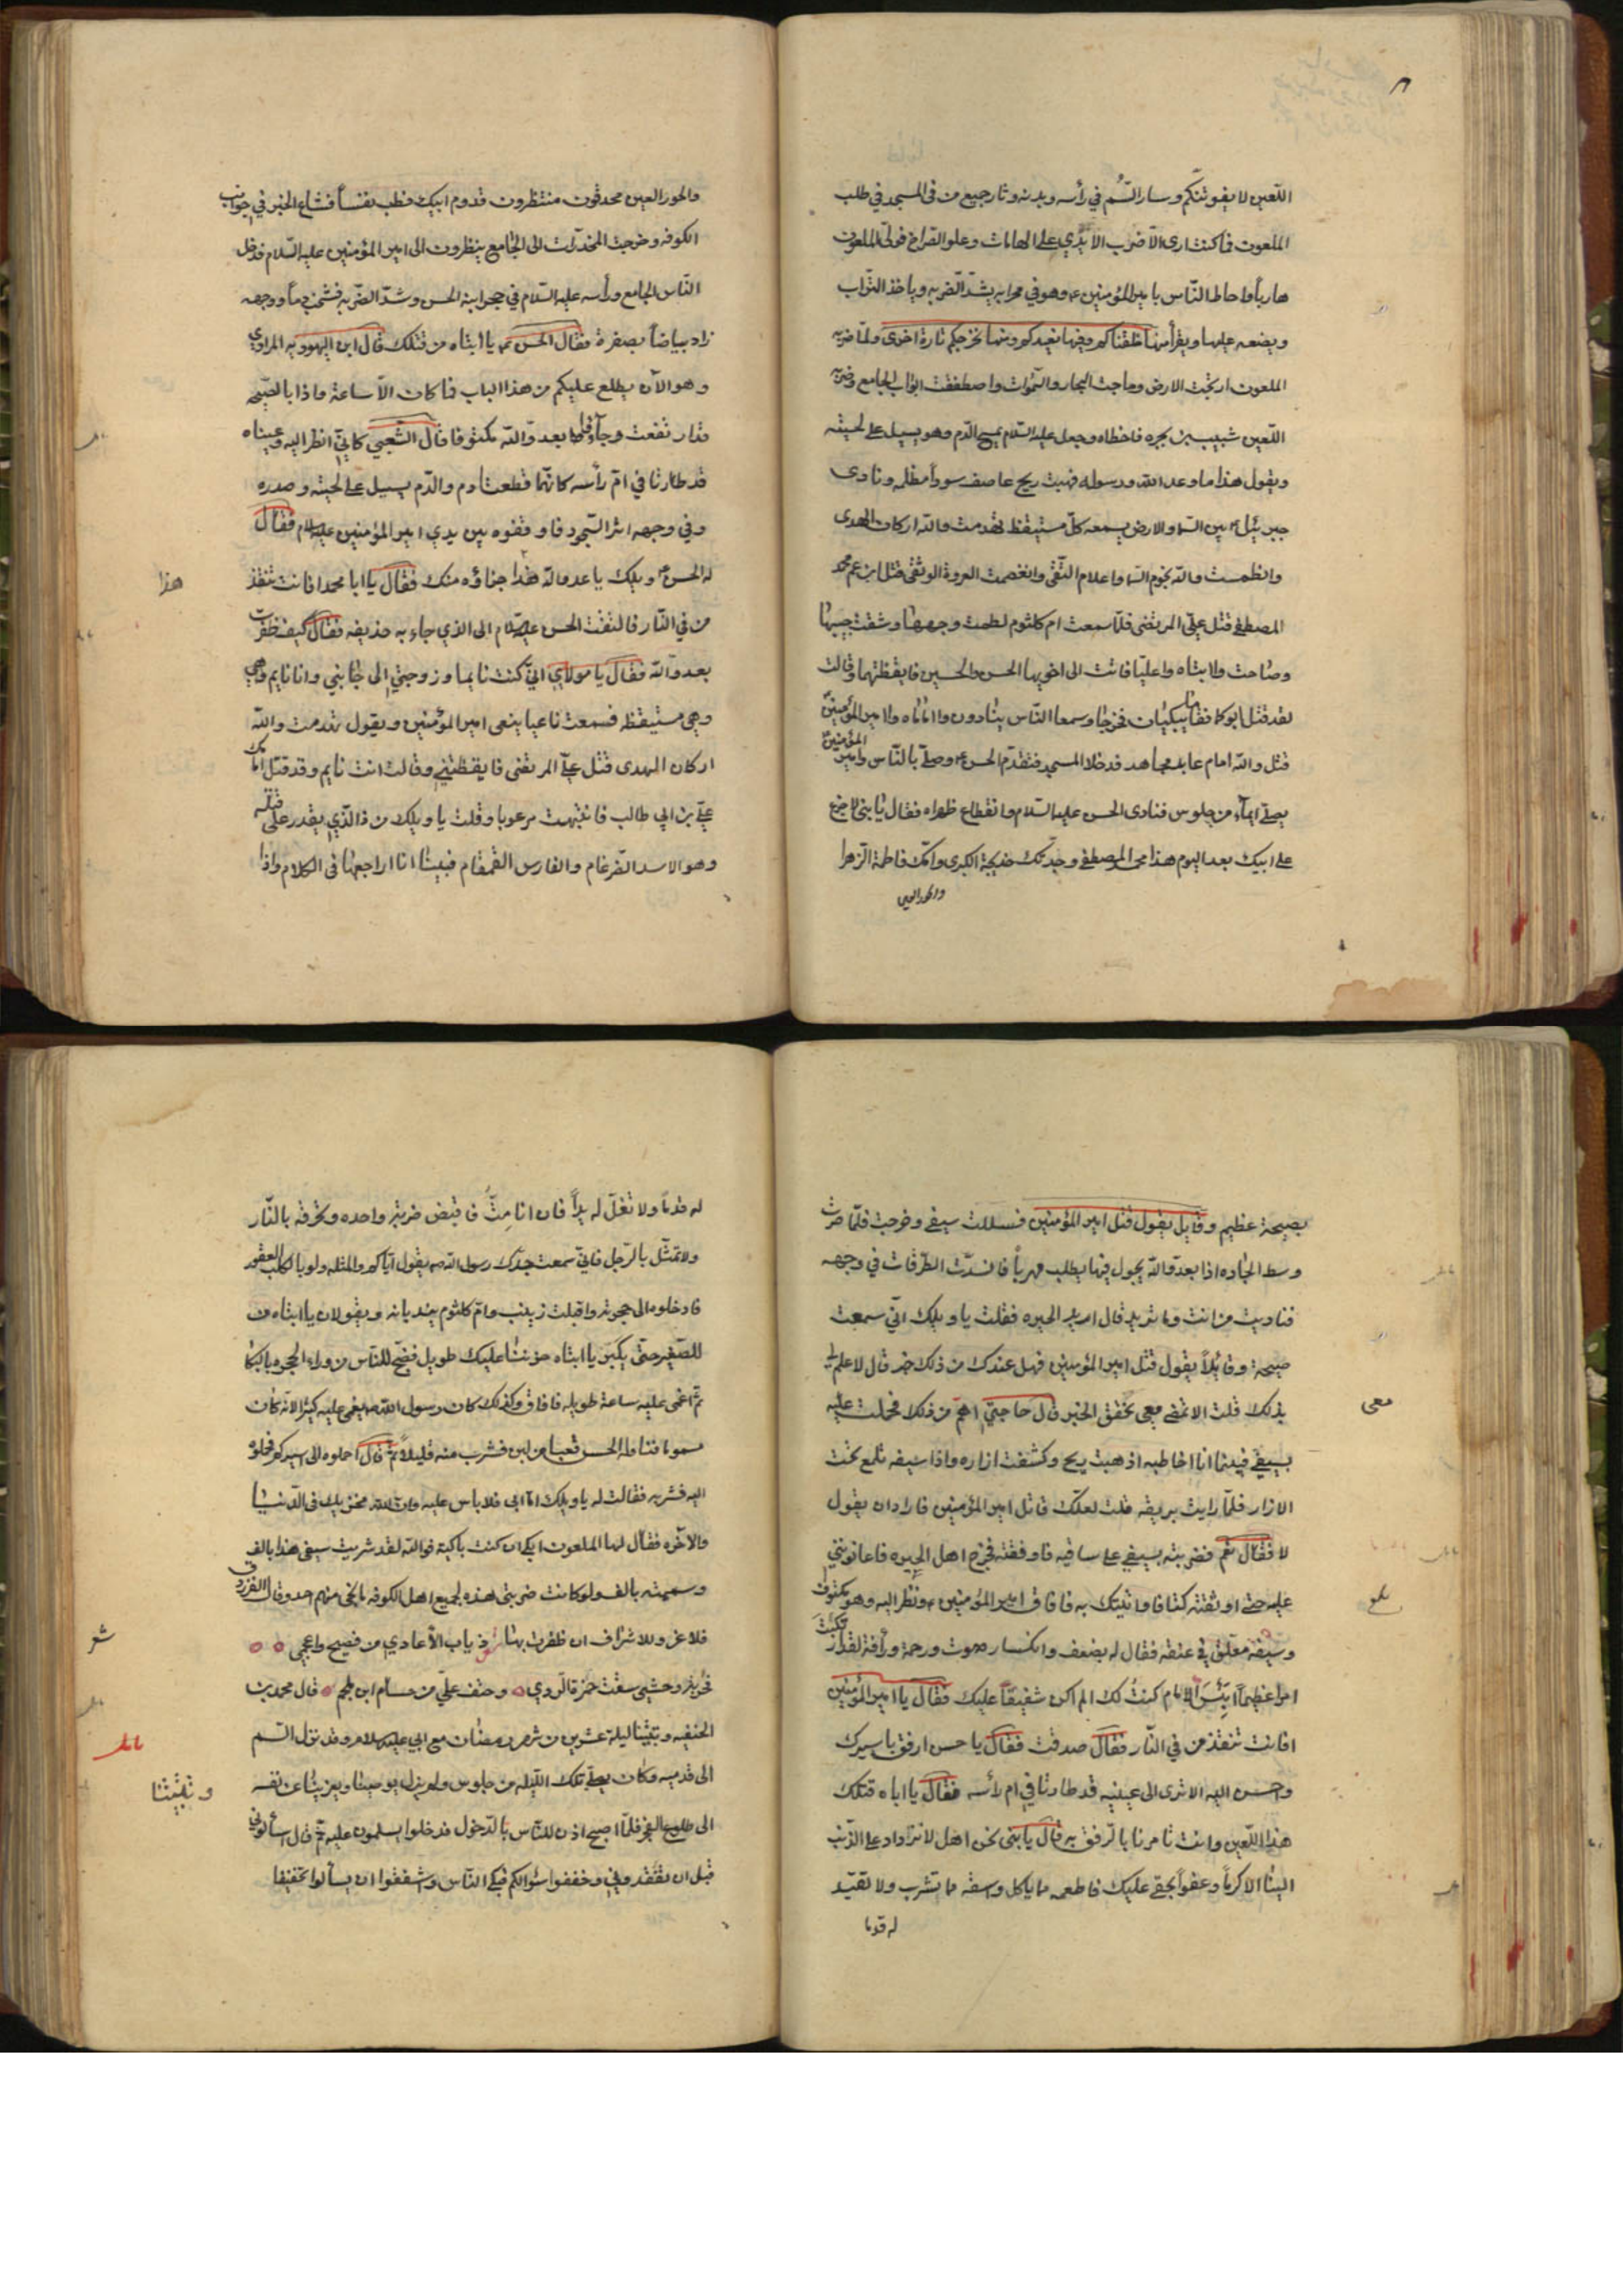 اللّعين لا يفوتنّكم وسار السّم في رأسه وبدنه وثار جميع من في المسجد في طلب
الملعون فما كنت ارى الّا ضرب الايدي على الهامات وعلو الصراخ فولّى الملعون
هاربا واحاط النّاس بامير المؤمنين ع وهو في محرابه يشدّ الضربه وياخذ التّراب
ويضعه عليها ويقرأ منها خلقناكم وفيها نعيدكم ومنها نخرجكم تارة اخرى ولمّا ضربه
الملعون ارتجت الارض وماجت البحار والسّموات واصطفقت ابواب الجامع وضربه
اللّعين شبيب بن بجره فاخطاه وجعل عليه السّلام يمسح الدّم وهو يسيل على لحيته
ويقول هذا ما وعد الله ورسوله فهبت ريح عاصف سودأ مظلمه ونادى
جبرئيل ع بين السّماء والارض يسمعه كلّ مستيقظ تهدمت والله اركان الهدى
وانطمست والله نجوم السّماء واعلام التّقى وانفصمت العروة الوثقى قتل ابن عم محمد
المصطفى قتل عليّ المرتضى فلمّا سمعت ام كلثوم لطمت وجهها وشقت جيبها
وصاحت وا ابتاه وا عليّا فاتت الى اخويها الحسن والحسين فايقظتهما وقالت
لقد قتل ابوكما فقاما يبكيان فخرجا وسمعا النّاس ينادون وا اماماه وا امير المؤمنين
قتل والله امام عابد مجاهد فدخلا المسجد فتقدّم الحسن ع وصلّى بالنّاس وامير المؤمنين
يصلّي ايماء من جلوس فنادى الحسن عليه السّلام وا نقطاع ظهراه فقال يا بنى لا جزع
على ابيك بعد اليوم هذا محمد المصطفى وجدتك خديجة الكبرى وامّك فاطمة الزهرا
والحور العين
والحور العين محدقون منتظرون قدوم ابيك فطب نفسأ فشاع الخبر في جوانب
الكوفه وخرجت المخدّرات الى الجامع ينظرون الى امير المؤمنين عليه السّلام فدخل
النّاس الجامع ورأسه عليه السّلام في حجر ابنه الحسن وشدّ الضّربه فشخبت دماً ووجهه
زاد بياضاً بصفرة فقال الحسن ع يا ابتاه من قتلك قال ابن اليهوديه المرادي
وهو الآن يطلع عليكم من هذا الباب فما كان الّا ساعة واذا بالصّيحه
قد ارتفعت وجاؤا بعدوّ الله مكتوفا قال الشّعبي كانيّ انظر اليه وعيناه
قد طارتا في امّ رأسه كانّهما قطعتا دم والدّم يسيل على لحيته وصدره
وفي وجهه اثر السّجود فاوقفوه بين يدي امير المؤمنين عليه السلام فقال
له الحسن ع ويلك يا عدو الله هذا جزاؤه منك فقال يا ابا محمد افانت تنقذ
هذا
من في النّار فالتفت الحسن عليه السّلام الى الذي جاء به حذيفه فقال كيف ظفرت
بعدو الله فقال يا مولاي انيّ كنت نايما وزوجتي الى جانبي وانا نايم وهي
وهي مستيقظه فسمعت ناعيا ينعى امير المؤمنين ويقول تهدمت والله
اركان الهدى قتل عليّ المرتضى فايقظتني وقالت انت نايم وقد قتل امامك
عليّ بن ابي طالب فانتبهت مرعوبا وقلت يا ويلك من ذا الّذي يقدر على قتله
وهو الاسد الضّرغام والفارس القمقام فبينا انا اراجعها في الكلام واذا
بصيحة عظيمه وقايل يقول قتل امير المؤمنين فسللت سيفي وخرجت فلمّا صرت
وسط الجاده اذا بعدوّ الله يجول فيها يطلب مهرباً فانسدّت الطّرقات في وجهه
فناديت من انت وما تريد قال اريد الحيره فقلت يا ويلك انّي سمعت
صيحة وقايلاً يقول قتل امير المؤمنين فهل عندك من ذلك خبر قال لا علم لي
بذلك قلت الا تمضي معي تحقق الخبر قال حاجتيّ اهمّ من ذلك فحملت عليه
معى
بسيفي فبينما انا اخاطبه اذ هبت ريح وكشفت ازاره واذا سيفه تلمع تحت
الازار فلمّا رايت بريقه قلت لعلّك قاتل امير المؤمنين فاراد ان يقول
لا فقال نعم فضربته بسيفي على ساقيه فاوقفته فخرج اهل الحيره فاعانوني
عليه حتى اوثقته كتافا واتيتك به فافاق امير المؤمنين ع ونظر اليه وهو مكتوف
وسيفه معلّق في عنقه فقال له بضعف وانكسار صوت ورحمة ورأفة لقد ارتكبت
امرا عظيماً ابئس الامام كنتُ لك الم اكن شفيقاً عليك فقال يا امير المؤمنين
افانت تنقذ من في النّار فقال صدقت فقال يا حسن ارفق باسيرك
واحسن اليه الا ترى الى عينيه قد طارتا في ام رأسه فقال يا اباه قتلك
هذا اللّعين وانت تامرنا بالرّفق به قال يا بنى نحن اهل لا نزداد على الذّنب
الينا الا كرماً وعفواً بحقي عليك فاطعمه ما ياكل واسقه ما تشرب ولا تقيّد
له قدما
له قدماً ولا تغلّ له يداً فان انا مِتّ فاقتص ضربة واحده وتحرقه بالنّار
ولا تمثّل بالرّجل فانيّ سمعت جدّك رسول الله ص يقول ايّاكم والمثله ولو بالكلب العقور
فادخلوه الى حجرته واقبلت زينب وامّ كلثوم يندبانه ويقولان يا ابتاه من
للصّغير حتّى يكبَر يا ابتاه حزننا عليك طويل فضجّ للنّاس من وراء الحجره بالبكا
ثمّ اغمى عليه ساعة طويله فافاق وكذلك كان رسول الله ص يغمى عليه كثيرا لانه كان
مسموما فناوله الحسن قعبا من لبن فشرب منه قليلاً ثمّ قال احملوه الى اسيركم فحملوه
اليه فشربه فقالت له يا ويلك امّا ابي فلا باس عليه وانّ الله مخزيك في الدّنيا
والاخره فقال لها الملعون ابكي ان كنت باكية فوالله لقد شريت سيفى هذا بالف
وسممته بالف ولو كانت ضربتى هذه لجميع اهل الكوفه ما نجى منهم احد وقال الفرزدق
فلا عز وللاشراف ان ظفرت بها ذياب الأعادي من فصيح واعجمي
شعر
فحربة وحشي سقت حمزة الردي وحتف عليّ من حسام ابن ملجم قال محمد بن
الحنفيه وبتنا ليلة عشرين من شهر رمضان مع ابي عليه السلام وقد نزل السّم
الى قدميه وكان يصلّى تلك اللّيله من جلوس ولم يزل يوصينا ويعزينا عن نفسه
الى طلوع الفجر فلمّا اصبح اذن للنّاس بالدّخول فدخلوا يسلمون عليه ثمّ قال اسألوني
قبل ان تفقدوني وخففوا سؤالكم فبكى النّاس واشفقوا ان يسألوا تخفيفا